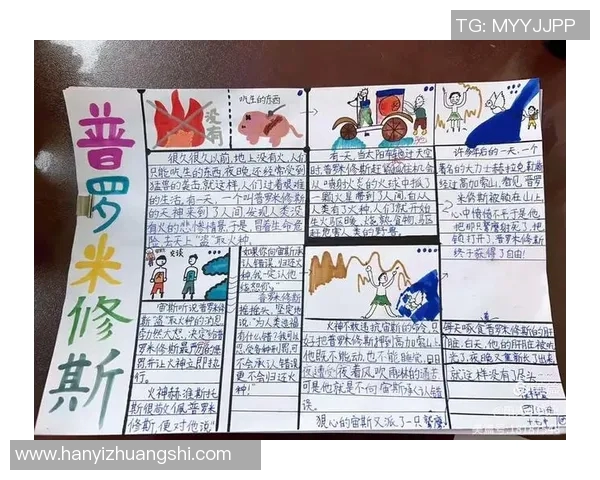 TG: MYYJJPP
普罗米修斯
没有
吃生的东西
很久很久以前,地上没有火,人们
只能吃生的东西,夜晚还经常受到
猛兽的袭击,就这样,人们过着艰难
的生活。有一天,一个叫普罗米修斯
的天神来到了人间,发现人类没
有火的悲惨情景,于是,冒着生命危
险,去天上“盗”取火种。
有一天,当太阳车驰过天空
时,普罗米修斯
从
一颗火星,带到了人间。自从
人类有了火种,人们就开始
生火取暖、烧熟食物、驱
赶危害人类的野兽。
许多年后的一天,一个
著名的大力士赫拉克勒斯
经过高加索山,看见普罗
米修斯被锁在山上,
心中愤愤不平,于是他
他即只鹫鹰射死了,把
锁打开了,普罗米修斯
终于获得了自由!
交谈
宙斯听说普罗米修
斯“盗”取火种的消息,
勃然大怒,决定给普
罗米修斯最严厉的惩
罚,并让火神立即执
行。
火神赫淮斯托
斯很敬佩普罗
修斯,便对他说:“
如果你向宙斯承
认错误,归还火
种,我一定让他
饶恕你。”
普罗米修斯
摇摇头,坚定地
说:“为人类造福
有什么错?我可以忍
受各种刑罚,可不
会承认错误,
更不会归还火
种!”
火神不敢违抗宙斯的命令,只
好把普罗米修斯押到高加索山上。
他既不能动,也不能睡觉,日日
夜夜遭受着风吹雨淋的痛苦。
可是他就是不向宙斯承认错
误。
狠心的宙斯又派了一只鹫鹰,
每天啄食普罗米修斯的肝
脏。白天,他的肝脏被吃
光,夜晚又重新长了出来,
就这样没有了尽头……
www.hanyizhuangshi.com